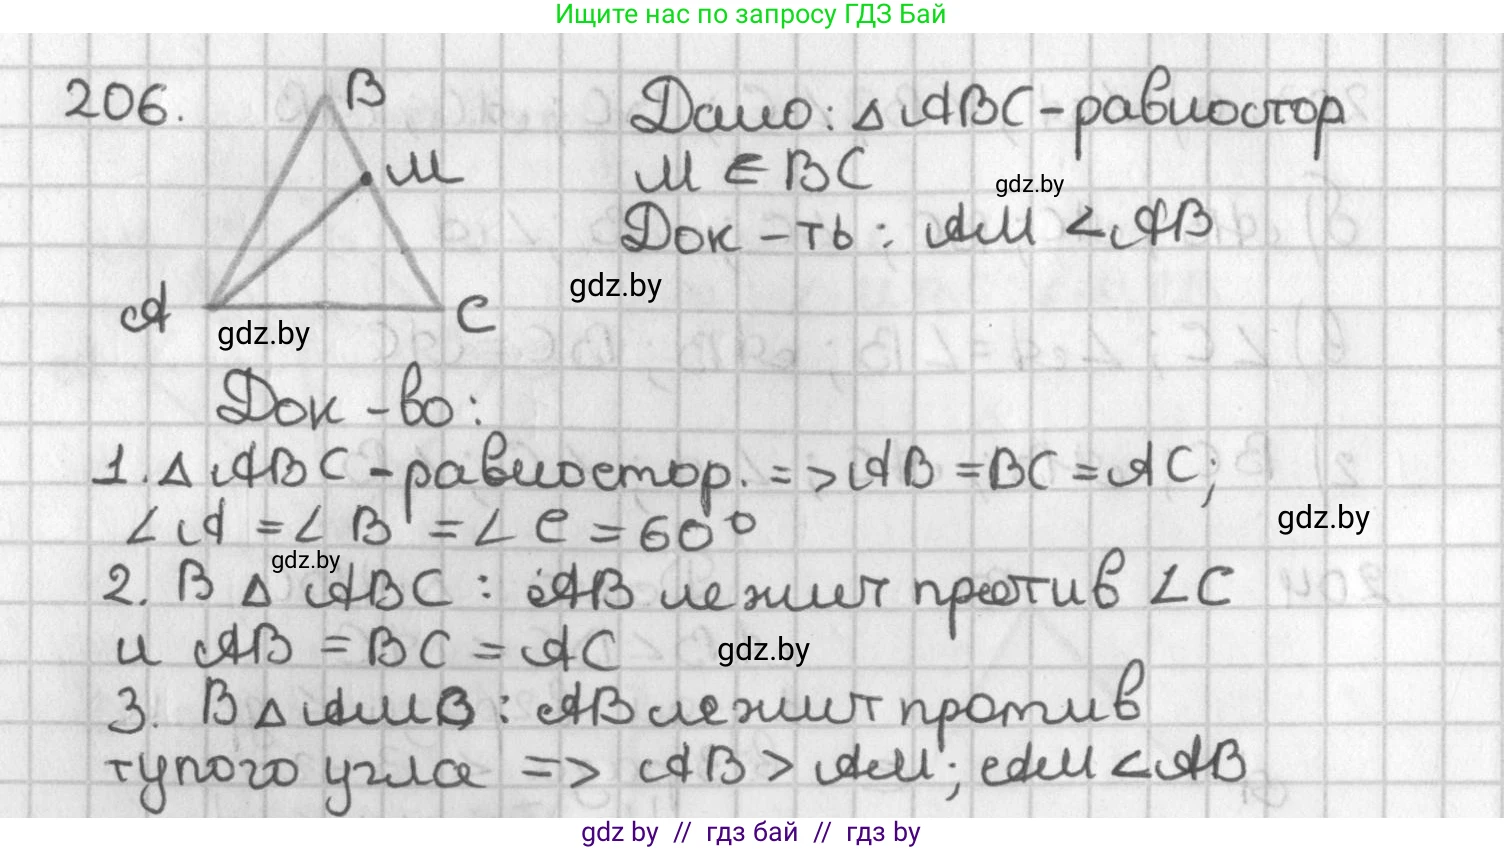 Ищите нас по запросу ГДЗ Бай
206.
B
M
A
C
Дано: △ ABC - равностор
M ∈ BC
gdz.by
Док-ть: AM < AB
gdz.by
gdz.by
Док-во:
1. △ ABC - равностор. => AB = BC = AC;
∠A = ∠B = ∠C = 60°
gdz.by
gdz.by
2. В △ ABC: AB лежит против ∠C
и AB = BC = AC
gdz.by
3. В △ AMB: AB лежит против
тупого угла => AB > AM; AM < AB
gdz by // гдз бай // гдз by